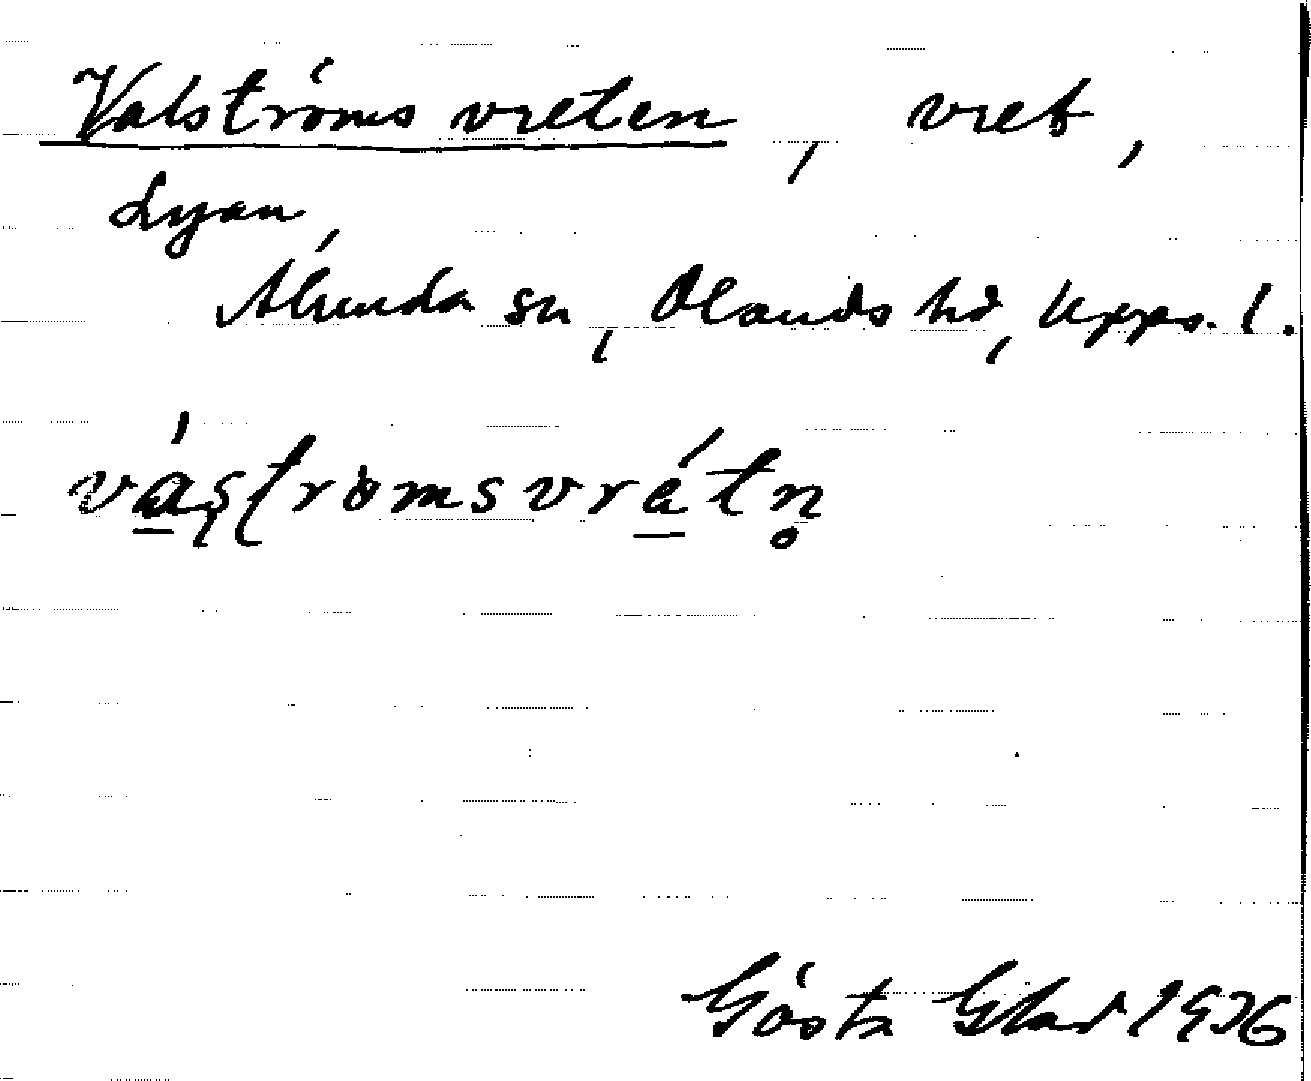 Valströms vreten, vret,
Lyan,
Alunda sn, Olands hd, Upps. l.
vás̨t̨römsvrátn̥
Gösta Glad 1936